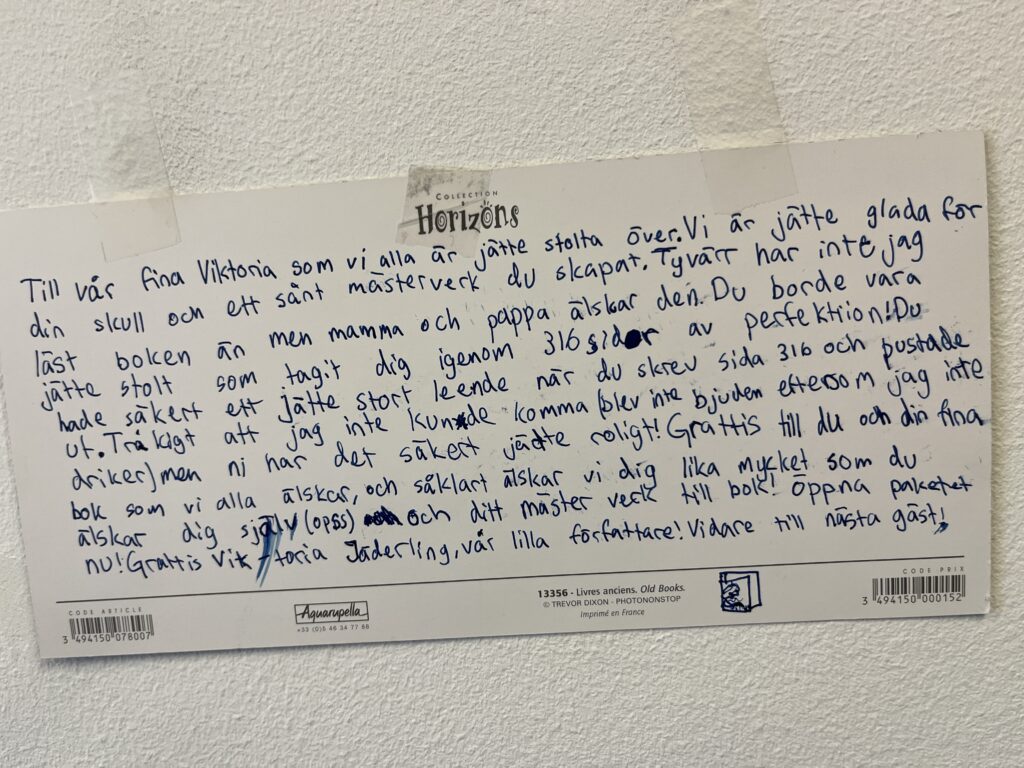 COLLECTION
Horizons
Till vår fina Viktoria som vi alla är jätte stolta över. Vi är jätte glada för
din skull och ett sånt mästerverk du skapat. Tyvärr har inte jag
läst boken än men mamma och pappa älskar den. Du borde vara
jätte stolt som tagit dig igenom 316 sidor av perfektiion! Du
hade säkert ett jätte stort leende när du skrev sida 316 och pustade
ut. Tråkigt att jag inte kunde komma (blev inte bjuden eftersom jag inte
driker) men ni har det säkert jätte roligt! Grattis till du och din fina
bok som vi alla älskar, och såklart älskar vi dig lika mycket som du
älskar dig själv (opss) och ditt mäster verk till bok! Öppna paketet
nu! Grattis Viktoria Jäderling, vår lilla författare! Vidare till nästa gäst!
CODE ARTICLE
3 494150 078007
Aquarupella
+33 (0)5 46 34 77 68
13356 - Livres anciens. Old Books.
© TREVOR DIXON - PHOTONONSTOP
Imprimé en France
CODE PRIX
3 494150 000152